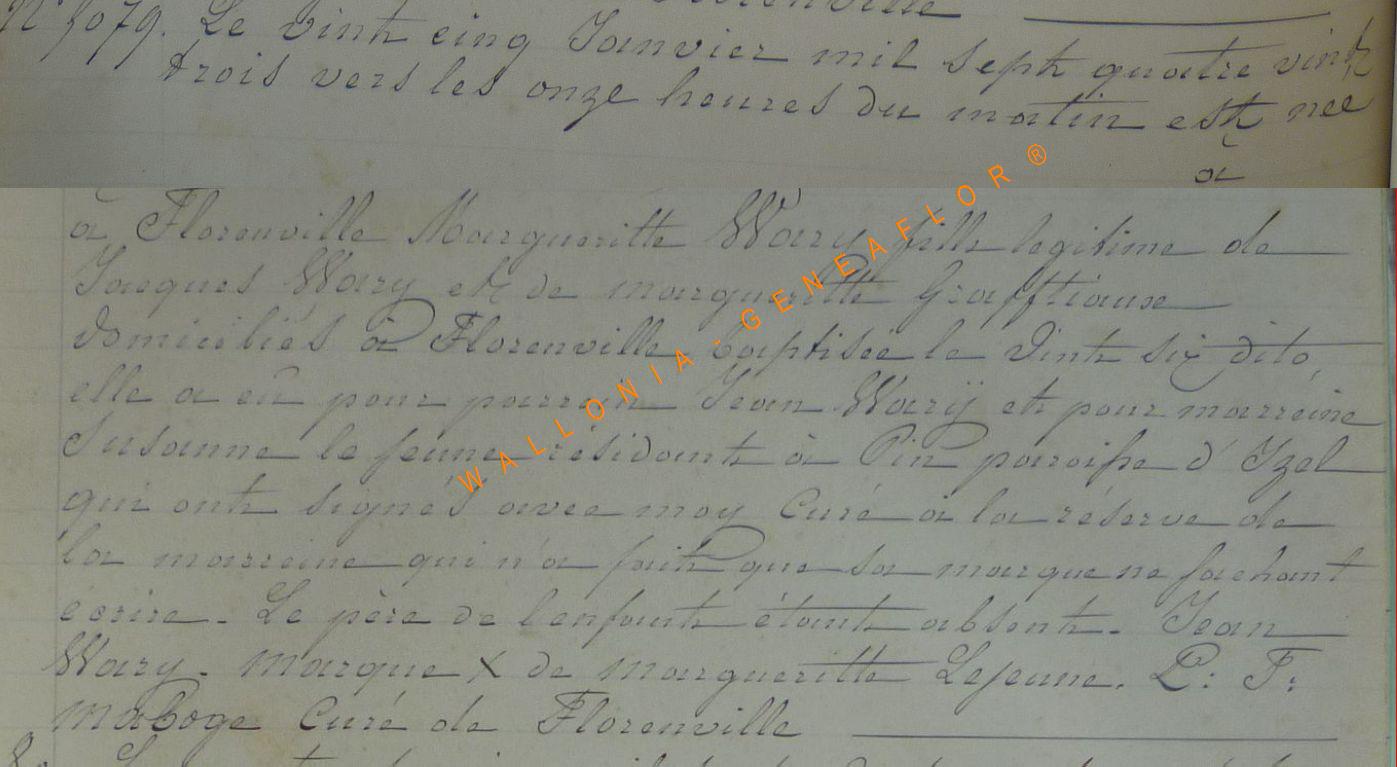 Florenville
N° 5079. Le vint cinq Janvier mil sept quatre vint
trois vers les onze heures du matin est née
à
à Florenville Margueritte Wary fille legitime de
Jacques Wary et de margueritte Grafftiaux
domiciliés à Florenville baptisée le Vint six dito,
elle a eû pour parrain Jean Warÿ et pour marreine
Susanne le jeune résidant à Pin paroisse d'Izel
qui ont signés avec moy Curé à la réserve de
la marreine qui n'a fait que sa marque ne sachant
écrire. Le père de l'enfant étant absent. Jean
Wary. marque X de margueritte Lejeune. P: F:
maboge Curé de Florenville
WALLONIA - GENEAFLOR ®